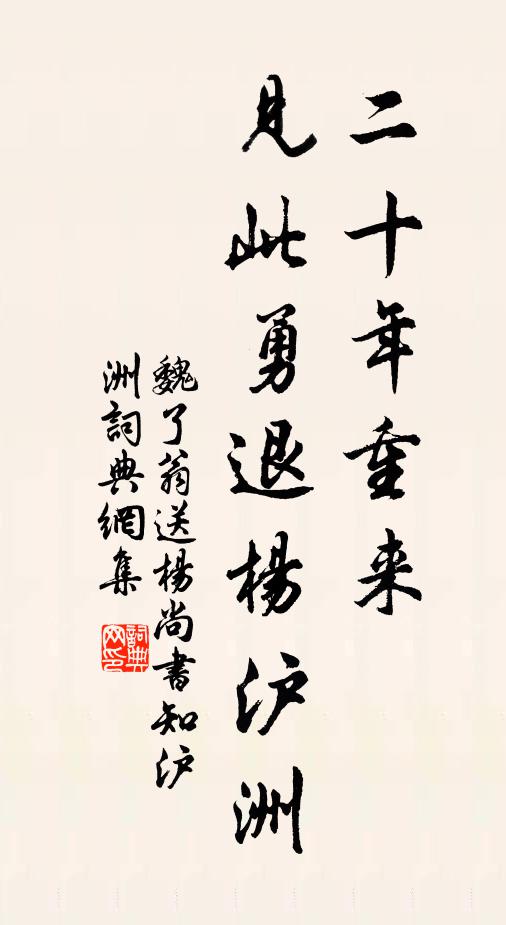 二十年重来
见此勇退楊泸洲
魏了翁送楊尚書知泸
洲詞典網集
詞典网印